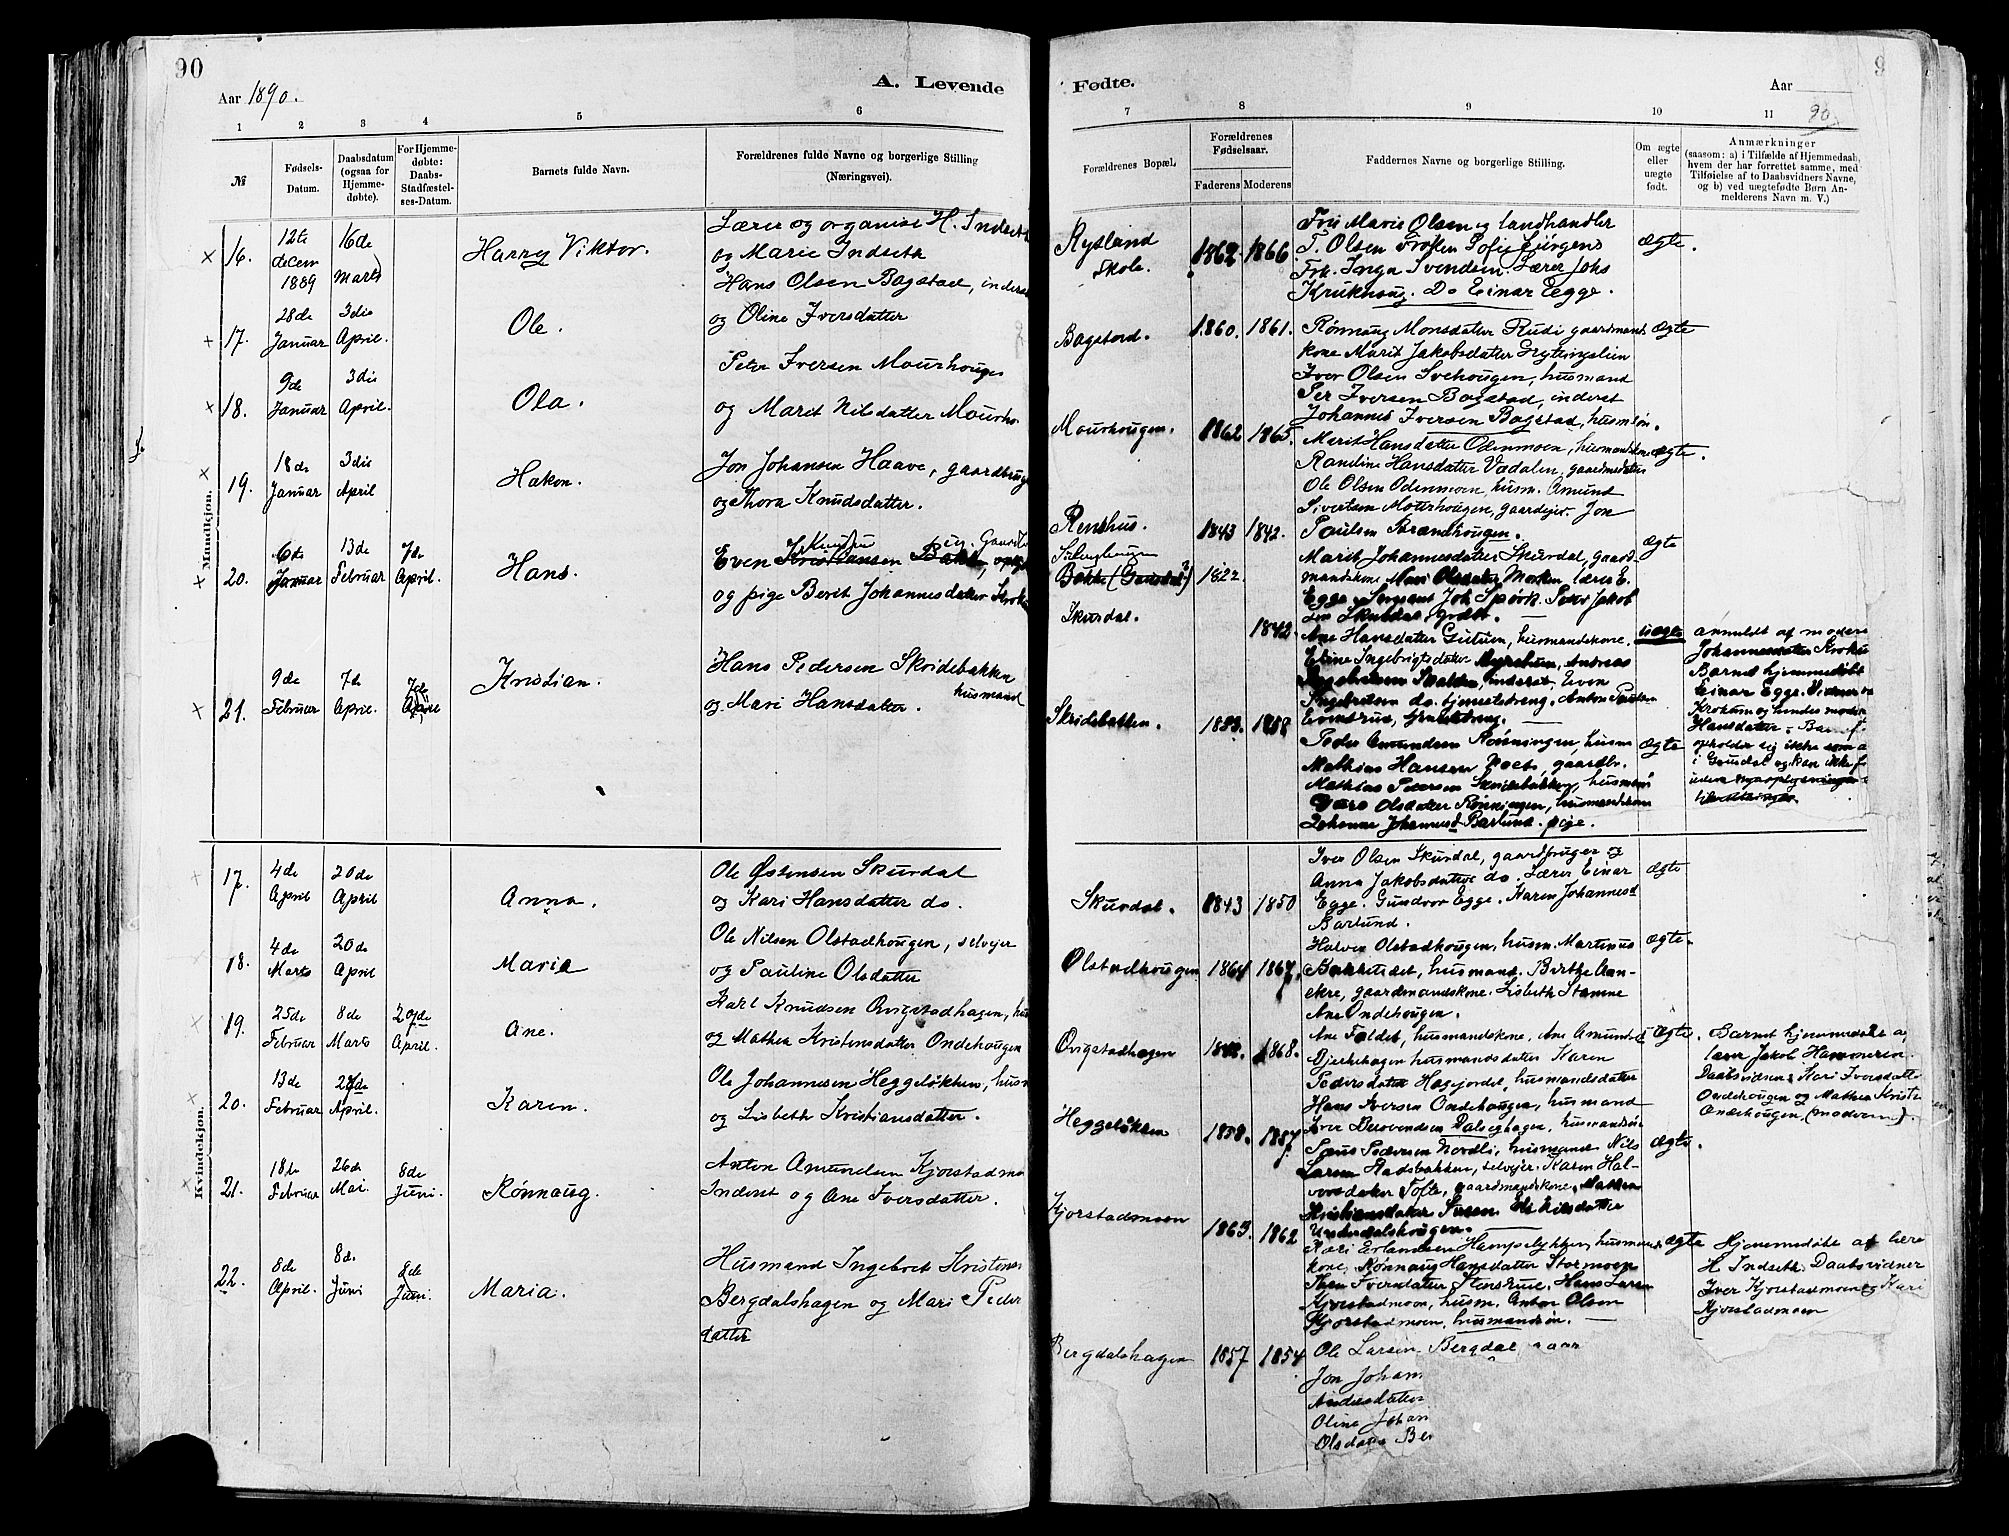 90
A. Levende
Aar 1890.
1 2 3 4 5 6
№
Fødsels-
Datum.
Daabsdatum
(ogsaa for
Hjemme-
døbte).
For Hjemme-
døbte:
Daabs-
Stadfæstel-
ses-Datum.
Barnets fulde Navn.
Forældrenes fulde Navne og borgerlige Stilling
(Næringsvei).
Mandkjøn.
16.
12te
decem
1889
16de
Marts
Harry Viktor.
Lærer og organist H. Indseth
og Marie Indseth
17.
28de
Januar
3die
April.
Ole.
Hans Olsen Bagstad, inderst
og Oline Iversdatter
18.
9de
Januar
3die
April.
Ola.
Peter Iversen Mourhougen
og Marit Nilsdatter Mourho
19.
18de
Januar
3die
April
Hakon.
Jon Johansen Haave, gaardbrug
og Thora Knudsdatter.
20.
6de
Januar
13de
Februar
7de
April.
Hans.
Even Kristiansen Bakke,
og pige Berit Johannesdatter Krok
21.
9de
Februar
7de
April.
7de
April
Kristian.
Hans Pedersen Skridebakken
husmand
og Mari Hansdatter.
Kvindekjøn.
17.
4de
April
20de
April
Anna.
Ole Østensen Skurdal
og Kari Hansdatter do.
18.
4de
Marts
20de
April
Maria
Ole Nilsen Olstadhougen, selvejer
og Pauline Olsdatter
19.
25de
Februar
8de
Marts
20de
April.
Ane.
Karl Knudsen Qvigstadhagen, hus
og Mathea Kristensdatter Ondehougen
20.
13de
Februar
April.
Karen.
Ole Johannesen Heggeløkken, husm
og Lisbeth Kristiansdatter.
21.
18de
Februar
26de
Mai.
8de
Juni.
Rønnaug.
Anton Amundsen Kjorstadmo
Inderst og Ane Iversdatter.
22.
8de
April.
8de
Juni
8de
Juni.
Maria.
Husmand Ingebret Kristens
Bergdalshagen og Mari Peder
datter
9
Fødte.
Aar
90
7 8 9 10 11
Forældrenes Bopæl.
Forældrenes
Fødselsaar.
Faderens Moderens
Faddernes Navne og borgerlige Stilling.
Om ægte
eller
uægte
født.
Anmærkninger
(saasom: a) i Tilfælde af Hjemmedaab,
hvem der har forrettet samme, med
Tilføielse af to Daabsvidners Navne,
og b) ved uægtefødte Børn An-
melderens Navn m. V.)
Rysland
Skole.
1862 1866
Fru Marie Olsen og Landhandler
T. Olsen Frøken Sofie Jürgens
Frk. Inga Svendsen. Lærer Johs
Krukhaug. Do Einar Egge.
ægte.
Bagstad.
1860. 1861.
Rønnaug Monsdatter Rudi gaardmands
kone Marit Jakobsdatter Grytingslien
Iver Olsen Svehougen, husmand
Per Iversen Bagstad, inderst
Johannes Iversen Bagstad, husmsøn.
ægte
Mourhougen.
1862 1865.
Marit Hansdatter Odenmoen, husmandskone
Randine Hansdatter Vadalen, gaardmsdatter
Ole Olsen Odenmoen, husm. Amund
Sivertsen Mourhougen, gaardejer. Jon
Paulsen Brandhougen.
ægte.
Renshus.
1843 1842.
Marit Johannesdatter Skurdal, gaard-
mandskone Mari Olsdatter Morken, lærer E.
Egge. Sergeant Joh Spørk. Peder Jakob
sen Skurdal,
ægte
Bakke (Gausdal?)
Skurdal.
1822.
1842.
Ane Hansdatter Gutuen, husmandskone.
Eline Ingebrigtsdatter Myrehum, Andreas
inderst, Even
Ingebretsen do. tjenestedreng. Anton Paulsen
uægte
anmeldt af moderen
Johannesdatter Krokum
Barnet hjemmedøbt
Einar Egge. Vidner
Krokum og hendes moder
Hansdatter. Barnef
opholder sig ikke som a
i Gausdal og kan ikke f
Skridebakken.
1883. 1858
Peder Amundsen Rønningen, husm
Mathias Hansen Hoel, gaardbr.
Mathias Pedersen Skridebakken, husmand
Olsdatter Rønningen, husmandskone
Johanne Johannesd Barlund. pige.
ægte
Skurdal.
1843 1850
Iver Olsen Skurdal, gaardbruger og
Anna Jakobsdatter do. Lærer Einar
Egge. Gundvor Egge. Karen Johannesd
Barlund.
ægte
Olstadhougen
1864 1867.
Halvor Olstadhougen, husm. Martinus
Bakkerudet, husmand. Birthe Aan-
ekre, gaardmandskone. Lisbeth Stamne
Ane Ondehougen.
ægte.
Qvigstadhagen
1868.
Ane Faldet, husmandskone, Ane Amundsd
Gjerkehagen husmandsdatter Karen
Pedersdatter Hagejordet, husmandsdatter
Hans Iversen Ondehougen, husmand
Iver Thorvendsen Dalseghagen, husmandsøn
ægte.
Barnet hjemmedøbt a
lærer Jakob Hammeren.
Daabsvidner: Kari Iversdatter
Ondehougen og Mathea Kriste
Ondehougen, (moderen).
Heggeløkken
1858. 1857
Paul Pedersen Nordli, husmand. Nils
Larsen Stadsbakken, selvejer. Karen Hal-
vorsdatter Tofte, gaardmandskone. Mathea
Kristiansdatter
Underdalshougen.
ægte.
Kjorstadmoen
1863 1862
Kari Erlandsen Hampelykken, husmands
kone, Rønnaug Hansdatter Stormoen
Thea Iversdatter Stenshuse. Hans Larsen
Kjorstadmoen, husm. Anton Olsen
Kjorstadmoen, husmandsøn.
ægte
Hjemmedøbt af lære
H Indseth. Daabsvidner
Iver Kjorstadmoen og Kari
Kjorstadmoen
Bergdalshagen
1857 1854
Ole Larsen Bergdal, gaar
Jon Johan
Andersdatter
Oline Johan
Olsdatter Ber